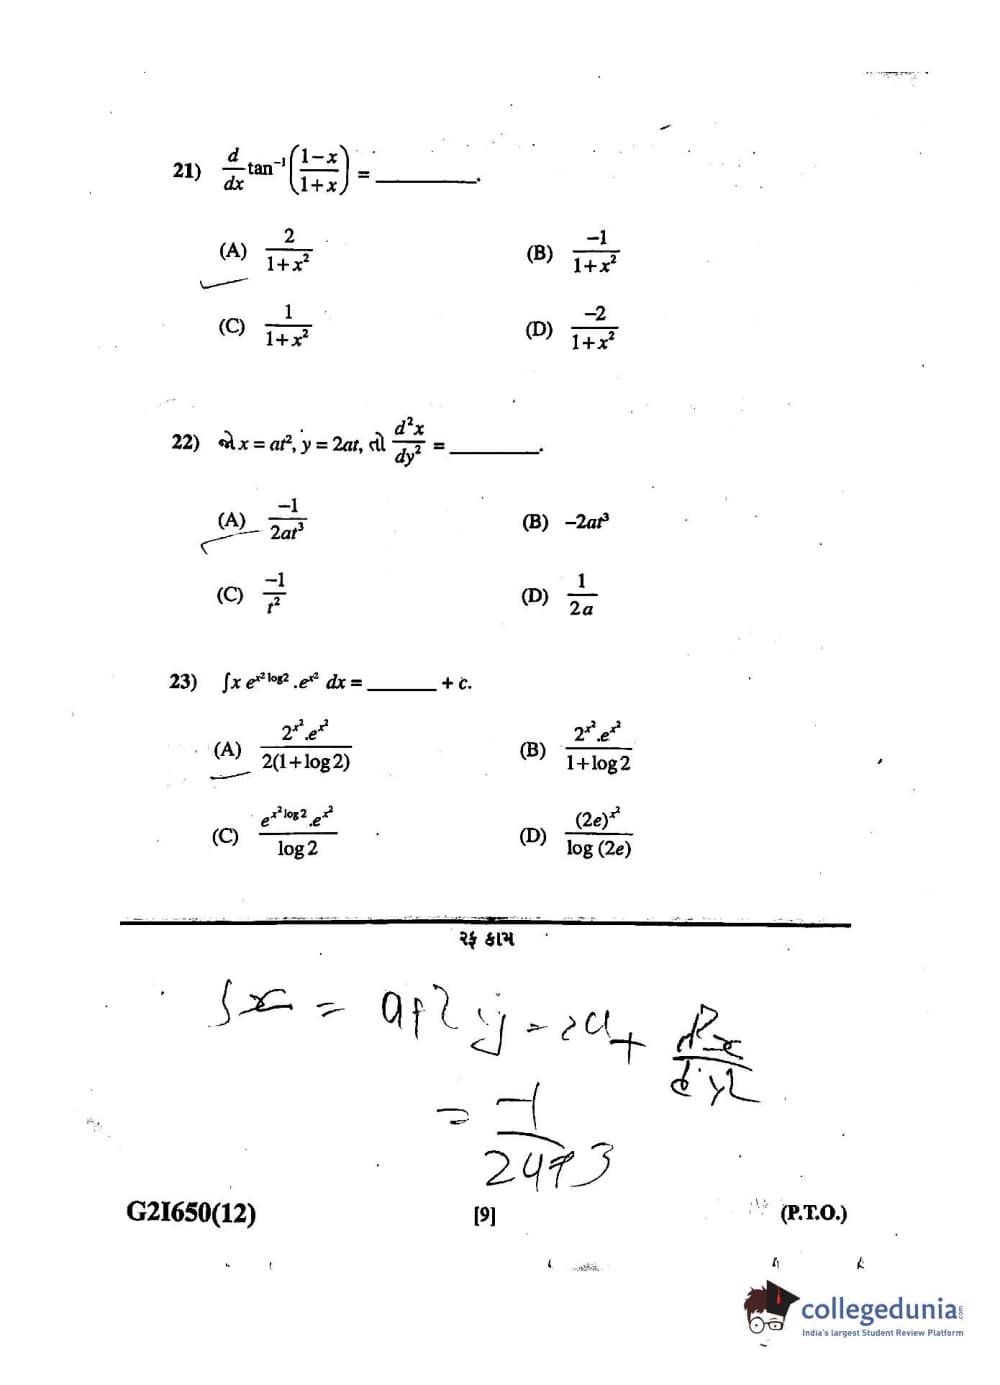 21) d/dx tan⁻¹((1−x)/(1+x)) = ________.
(A) 2/(1+x²) (B) −1/(1+x²)
(C) 1/(1+x²) (D) −2/(1+x²)
22) જો x = at², y = 2at, તો d²x/dy² = ________.
(A) −1/(2at³) (B) −2at³
(C) −1/t² (D) 1/(2a)
23) ∫x e^(x² log2) .e^(x²) dx = ______ + c.
(A) 2^(x²).e^(x²)/(2(1+log2)) (B) 2^(x²).e^(x²)/(1+log2)
(C) e^(x² log2).e^(x²)/(log2) (D) (2e)^(x²)/(log (2e))
રફ કામ
x = at2 y = 2at d²x/dy2
= −1/2at3
G2I650(12) [9] (P.T.O.)
collegedunia.com
India's largest Student Review Platform